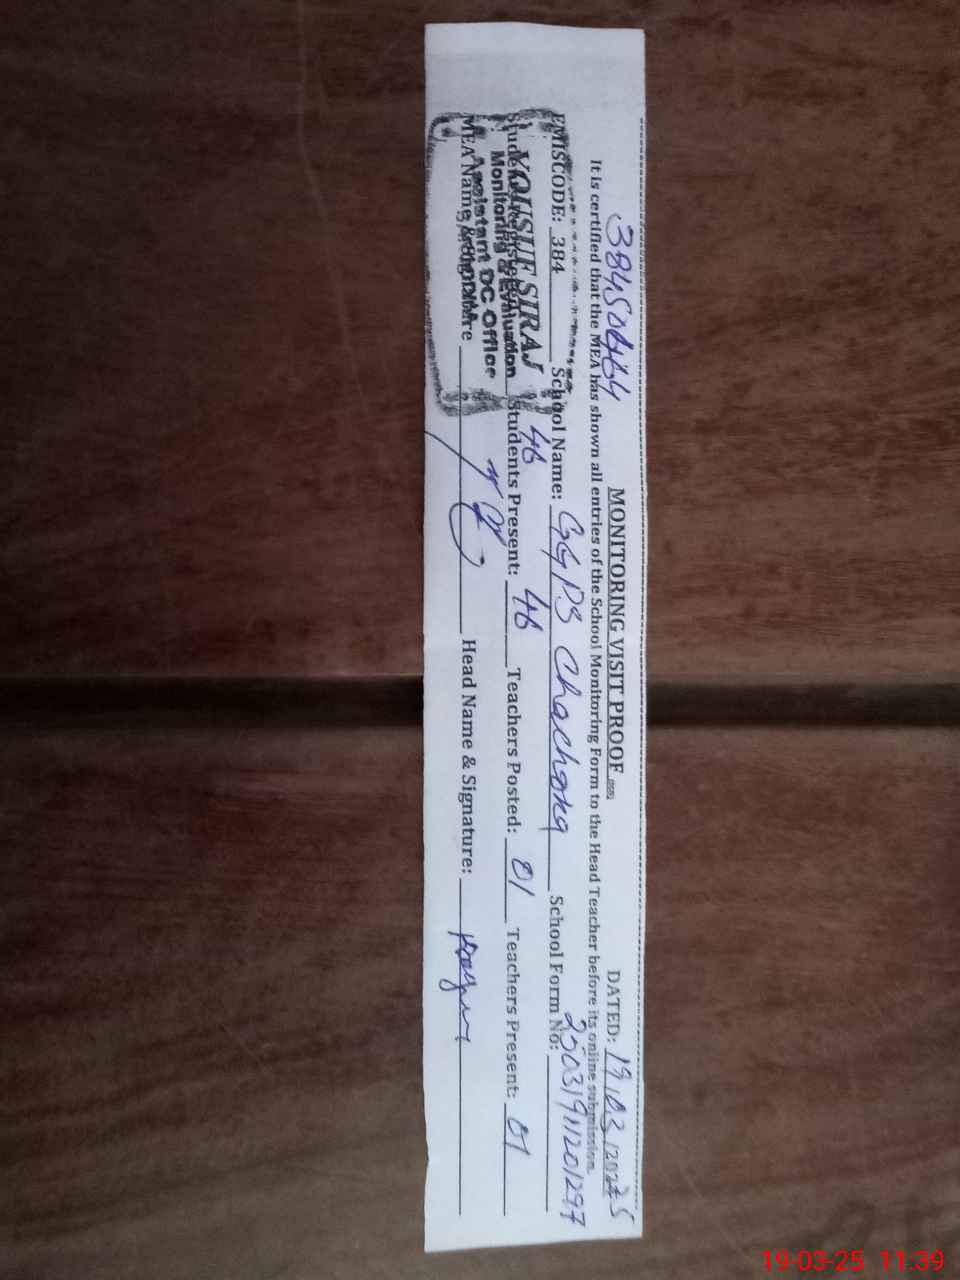 38450464
MONITORING VISIT PROOF
DATED: 19/03/2025
It is certified that the MEA has shown all entries of the School Monitoring Form to the Head Teacher before its online submission.
EMISCODE: 384 School Name: GGPS Chachona School Form No: 2503191201297
46 Students Present: 46 Teachers Posted: 01 Teachers Present: 01
MEA Name & Signature Head Name & Signature:
YOUSUF SIRAJ
Monitoring & Evaluation
Assistant DC Office
19-03-25 11:39